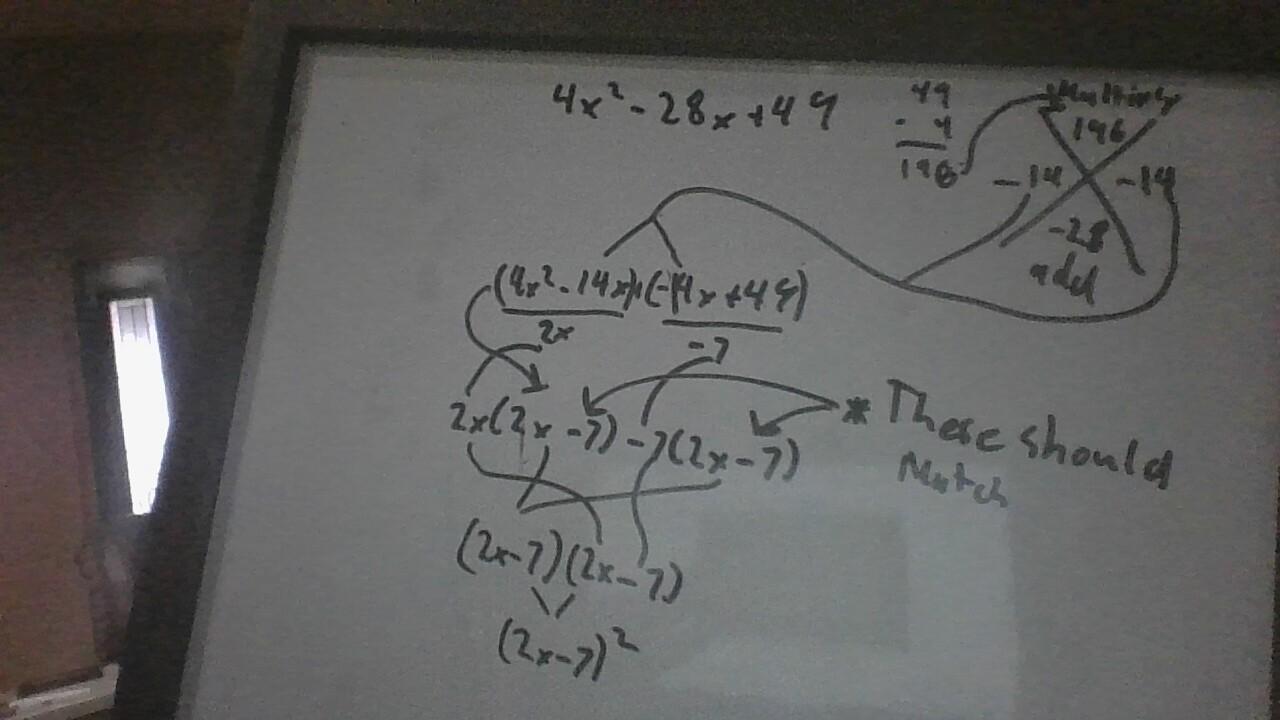 4x² - 28x + 49
49
- 4
196
Multiply
196
-14 -14
-28
add
(4x² - 14x) + (-14x + 49)
2x -7
2x(2x - 7) - 7(2x - 7)
* These should
Match
(2x - 7)(2x - 7)
(2x - 7)²